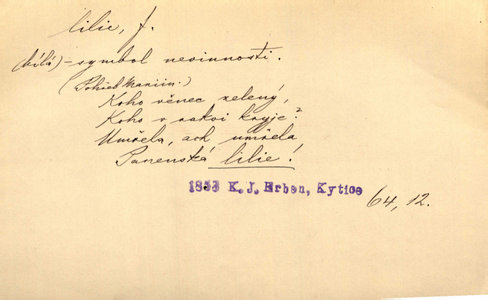 lilie, f.
(bílá) – symbol nevinnosti.
(Pohřeb Mariin.)
Koho věnec zelený,
Koho v rakvi kryje?
Umřela, ach umřela
Panenská lilie!
1853 K. J. Erben, Kytice
64, 12.